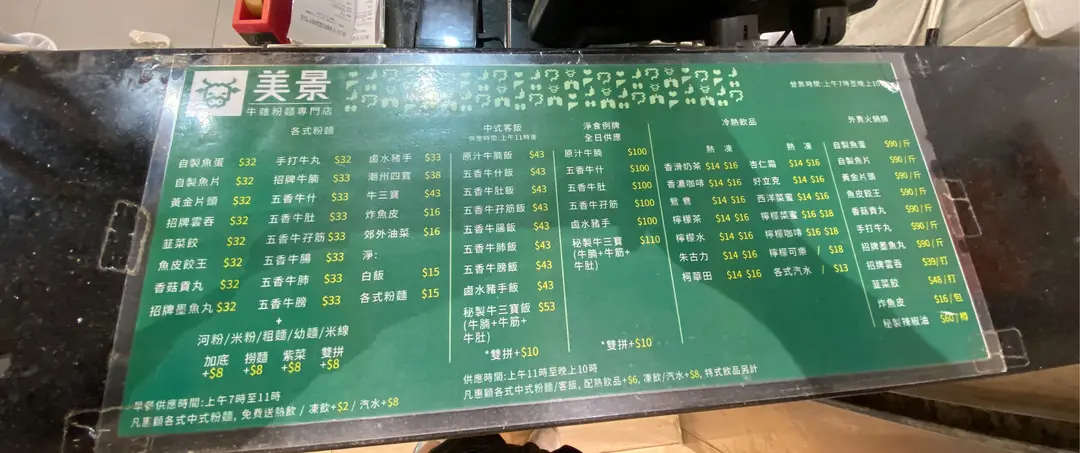 美景
牛雜粉麵專門店
營業時間:上午7時至晚上10
各式粉麵
自製魚蛋 $32
自製魚片 $32
黃金片頭 $32
招牌雲吞 $32
韮菜餃 $32
魚皮餃王 $32
香菇貢丸 $32
招牌墨魚丸 $32
手打牛丸 $32
招牌牛腩 $33
五香牛什 $33
五香牛肚 $33
五香牛孖筋 $33
五香牛腸 $33
五香牛肺 $33
五香牛膀 $33
鹵水豬手 $33
潮州四寶 $38
牛三寶 $43
炸魚皮 $16
郊外油菜 $16
淨:
白飯 $15
各式粉麵 $15
+
河粉/米粉/粗麵/幼麵/米線
加底 撈麵 紫菜 雙拼
+$8 +$8 +$8 +$8
早餐供應時間:上午7時至11時
凡惠顧各式中式粉麵, 免費送熱飲 / 凍飲+$2 / 汽水+$8
中式客飯
供應時間:上午11時後
原汁牛腩飯 $43
五香牛什飯 $43
五香牛肚飯 $43
五香牛孖筋飯 $43
五香牛腸飯 $43
五香牛肺飯 $43
五香牛膀飯 $43
鹵水豬手飯 $43
秘製牛三寶飯 $53
(牛腩+牛筋+
牛肚)
*雙拼+$10
淨食例牌
全日供應
原汁牛腩 $100
五香牛什 $100
五香牛肚 $100
五香牛孖筋 $100
鹵水豬手 $100
秘製牛三寶 $110
(牛腩+牛筋+
牛肚)
*雙拼+$10
供應時間:上午11時至晚上10時
凡惠顧各式中式粉麵/客飯, 配熱飲品+$6, 凍飲/汽水+$8, 特式飲品另計
冷熱飲品
熱 凍
香滑奶茶 $14 $16
香濃咖啡 $14 $16
鴛鴦 $14 $16
檸檬茶 $14 $16
檸檬水 $14 $16
朱古力 $14 $16
柯華田 $14 $16
熱 凍
杏仁霜 $14 $16
好立克 $14 $16
西洋菜蜜 $14 $16
檸檬菜蜜 $16 $18
檸檬咖啡 $16 $18
檸檬可樂 / $18
各式汽水 / $13
外賣火鍋牌
自製魚蛋 $90/斤
自製魚片 $90/斤
黃金片頭 $90/斤
魚皮餃王 $90/斤
香菇貢丸 $90/斤
手打牛丸 $90/斤
招牌墨魚丸 $90/斤
招牌雲吞 $39/打
韮菜餃 $48/打
炸魚皮 $16/包
秘製辣椒油 $60/樽